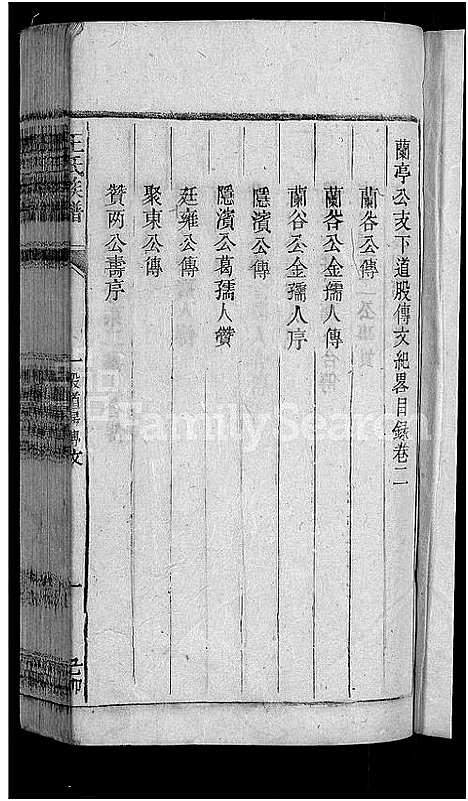 蘭亭公支下道股傳文紀畧目錄卷二
蘭谷公傳
蘭谷公金孺人傳
蘭谷公金孺人序
隱濱公傳
隱濱公葛孺人贊
廷雍公傳
聚東公傳
贊两公壽序
王氏族譜
一
己卯
FamilySearch